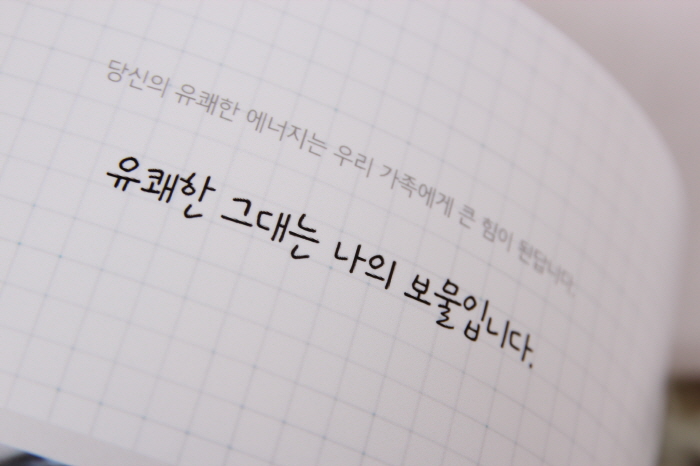 당신의 유쾌한 에너지는 우리 가족에게 큰 힘이 된답니다.
유쾌한 그대는 나의 보물입니다.